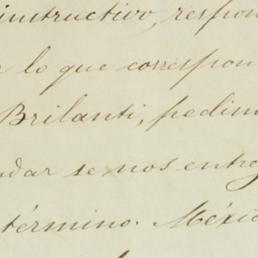 instructivo, respon
lo que correspon
Brilanti, pedim
dar se nos entreg
término. Méxic